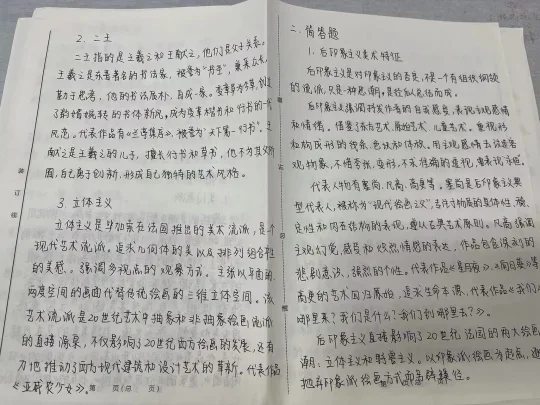 2. 二王
二王指的是王羲之和王献之，他们是父子关系。
王羲之是东晋著名的书法家，被誉为“书圣”，兼采众长，
勤于思考，他的书法质朴、自成一家。变革
了的书体新风，成为变革楷书和行书的一代
风范。代表作品有《兰亭集序》，被誉为“天下第一行书”。王
献之是王羲之的儿子，擅长行书和草书，他不为其父所
囿，自己勇于创新，形成自己独特的艺术风格。
3 立体主义
立体主义是毕加索在法国推出的美术流派，是个
现代艺术流派，追求几何体的美以及排列组合性
的美感。强调多视点的观察方式。主张以单面的、
两度空间的画面代替传统绘画的三维立体空间。该
艺术流派是20世纪艺术中抽象和非抽象绘画流派
的直接源泉，不仅影响了20世纪西方绘画的发展，还有
力地推动了西方现代建筑和设计艺术的革新。代表作品
《亚威农少女》。
第 页（共 页）
二、简答题
1. 后印象主义美术特征
后印象主义是对印象主义的否定，不是一个有组织纲领
的流派，只是一种思潮，是经后人总结而成。
后印象主义强调抒发作者的自我感受，表现主观感情
和情绪。借鉴了东方艺术、原始艺术、儿童艺术。重视形
和构成形的线条、色块和体积。用主观感情去改造客
观物象，不惜夸张、变形，不求准确的造型，来表现主题。
代表人物有塞尚、凡高、高更等。塞尚是后印象主义典
型代表人，被称为“现代绘画之父”，专注于物质的具体性、稳
定性和内在结构的表现，遵从古典艺术原则。凡高强调
主观幻觉、感受和炽热情感的表达，作品包含深刻的
悲剧意识，强烈的个性。代表作品《星月夜》、《向日葵》等
高更的艺术回归原始，追求生命本源，代表作品《我们从
哪里来？我们是什么？我们到哪里去？》。
后印象主义直接影响了20世纪法国的两大绘画
潮：立体主义和野兽主义。以印象派绘画为起点，通
抛弃印象派绘画方式而另辟蹊径。